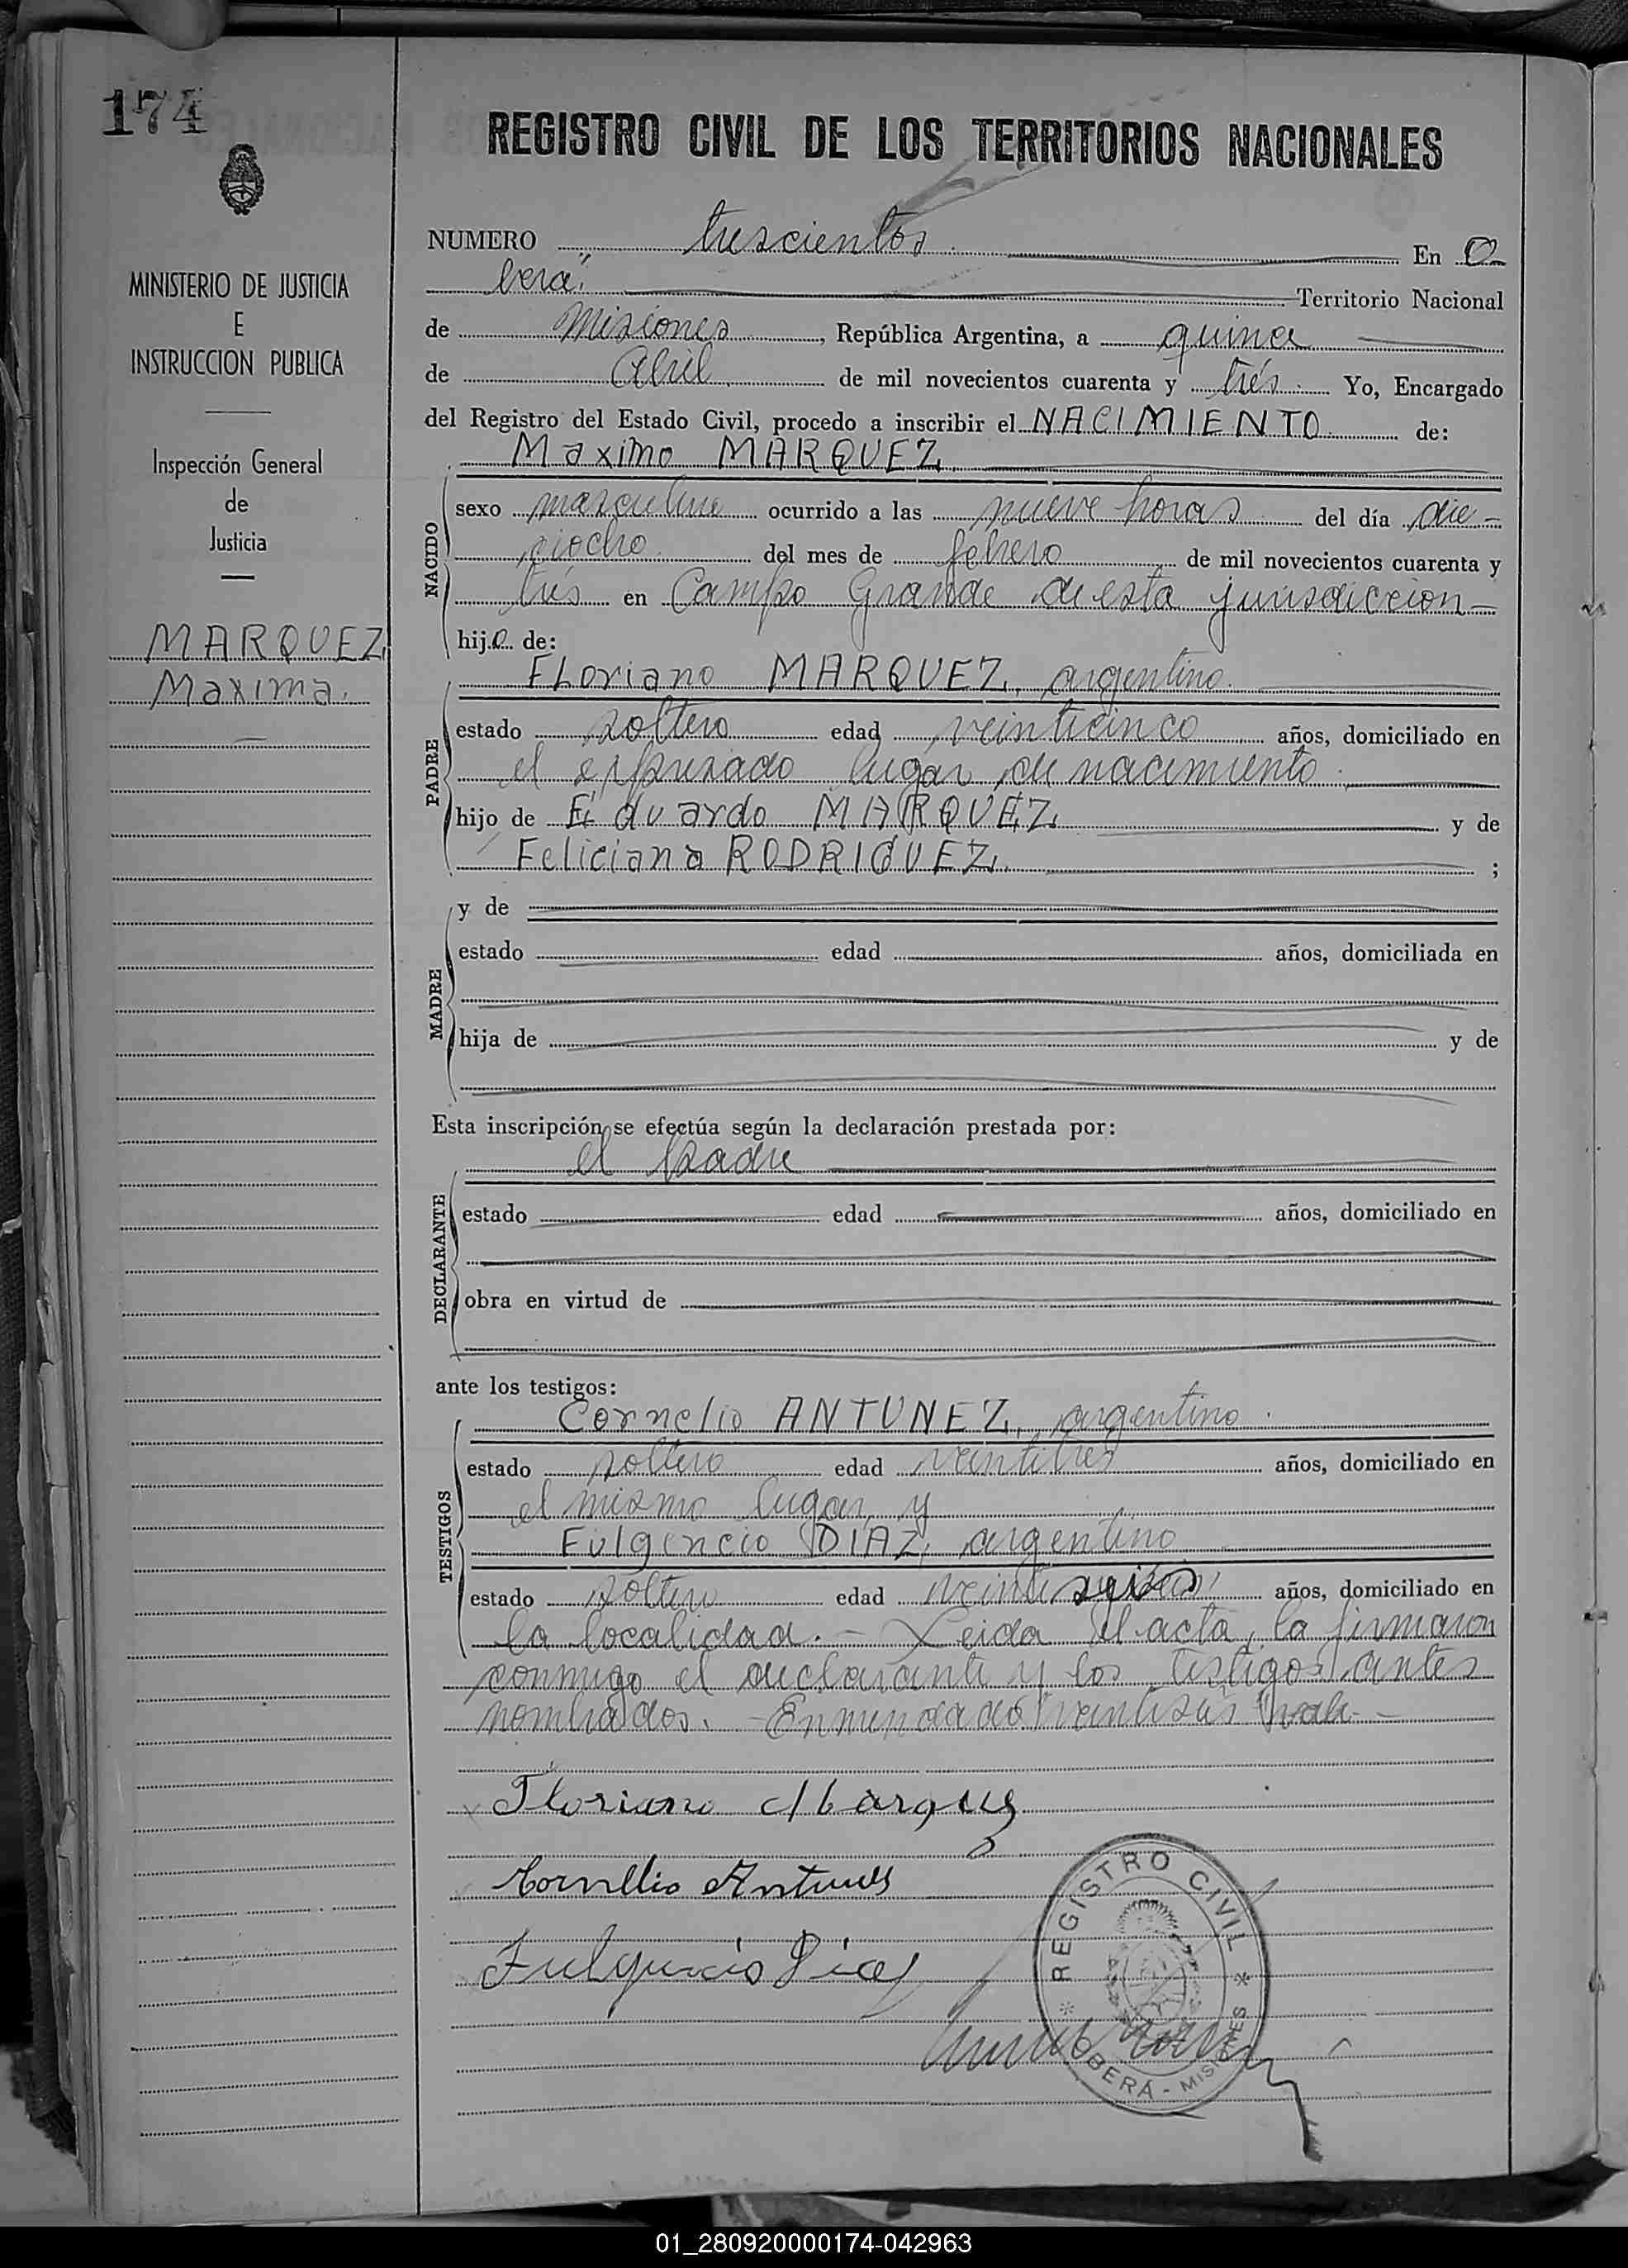 174
REGISTRO CIVIL DE LOS TERRITORIOS NACIONALES
MINISTERIO DE JUSTICIA
E
INSTRUCCION PUBLICA
Inspección General
de
Justicia
MARQUEZ
Maxima.
NUMERO trescientos En O
berá. Territorio Nacional
de Misiones, República Argentina, a quince
de Abril de mil novecientos cuarenta y trés. Yo, Encargado
del Registro del Estado Civil, procedo a inscribir el NACIMIENTO de:
Maximo MARQUEZ.
NACIDO
sexo masculino ocurrido a las nueve horas del día die-
ciocho del mes de febrero de mil novecientos cuarenta y
trés en Campo Grande de esta jurisdiccion-
hijo de:
Floriano MARQUEZ, argentino.
PADRE
estado soltero edad veinticinco años, domiciliado en
el expresado lugar de nacimiento.
hijo de Eduardo MARQUEZ. y de
Feliciana RODRIGUEZ. ;
MADRE
y de
estado edad años, domiciliada en
hija de y de
Esta inscripción se efectúa según la declaración prestada por:
el padre
DECLARANTE
estado edad años, domiciliado en
obra en virtud de
ante los testigos:
Cornelio ANTUNEZ, argentino.
TESTIGOS
estado soltero edad veintitres años, domiciliado en
el mismo lugar, y
Fulgencio DIAZ, argentino
estado soltero edad veintiseis años, domiciliado en
la localidad. - Leida el acta, la firmaron
conmigo el declarante y los testigos antes
nombrados. - Enmendado veintiseis vale. -
Floriano Marquez
Cornelio Antunes
Fulgencio Diaz
REGISTRO CIVIL
OBERÁ - MISIONES
01_280920000174-042963